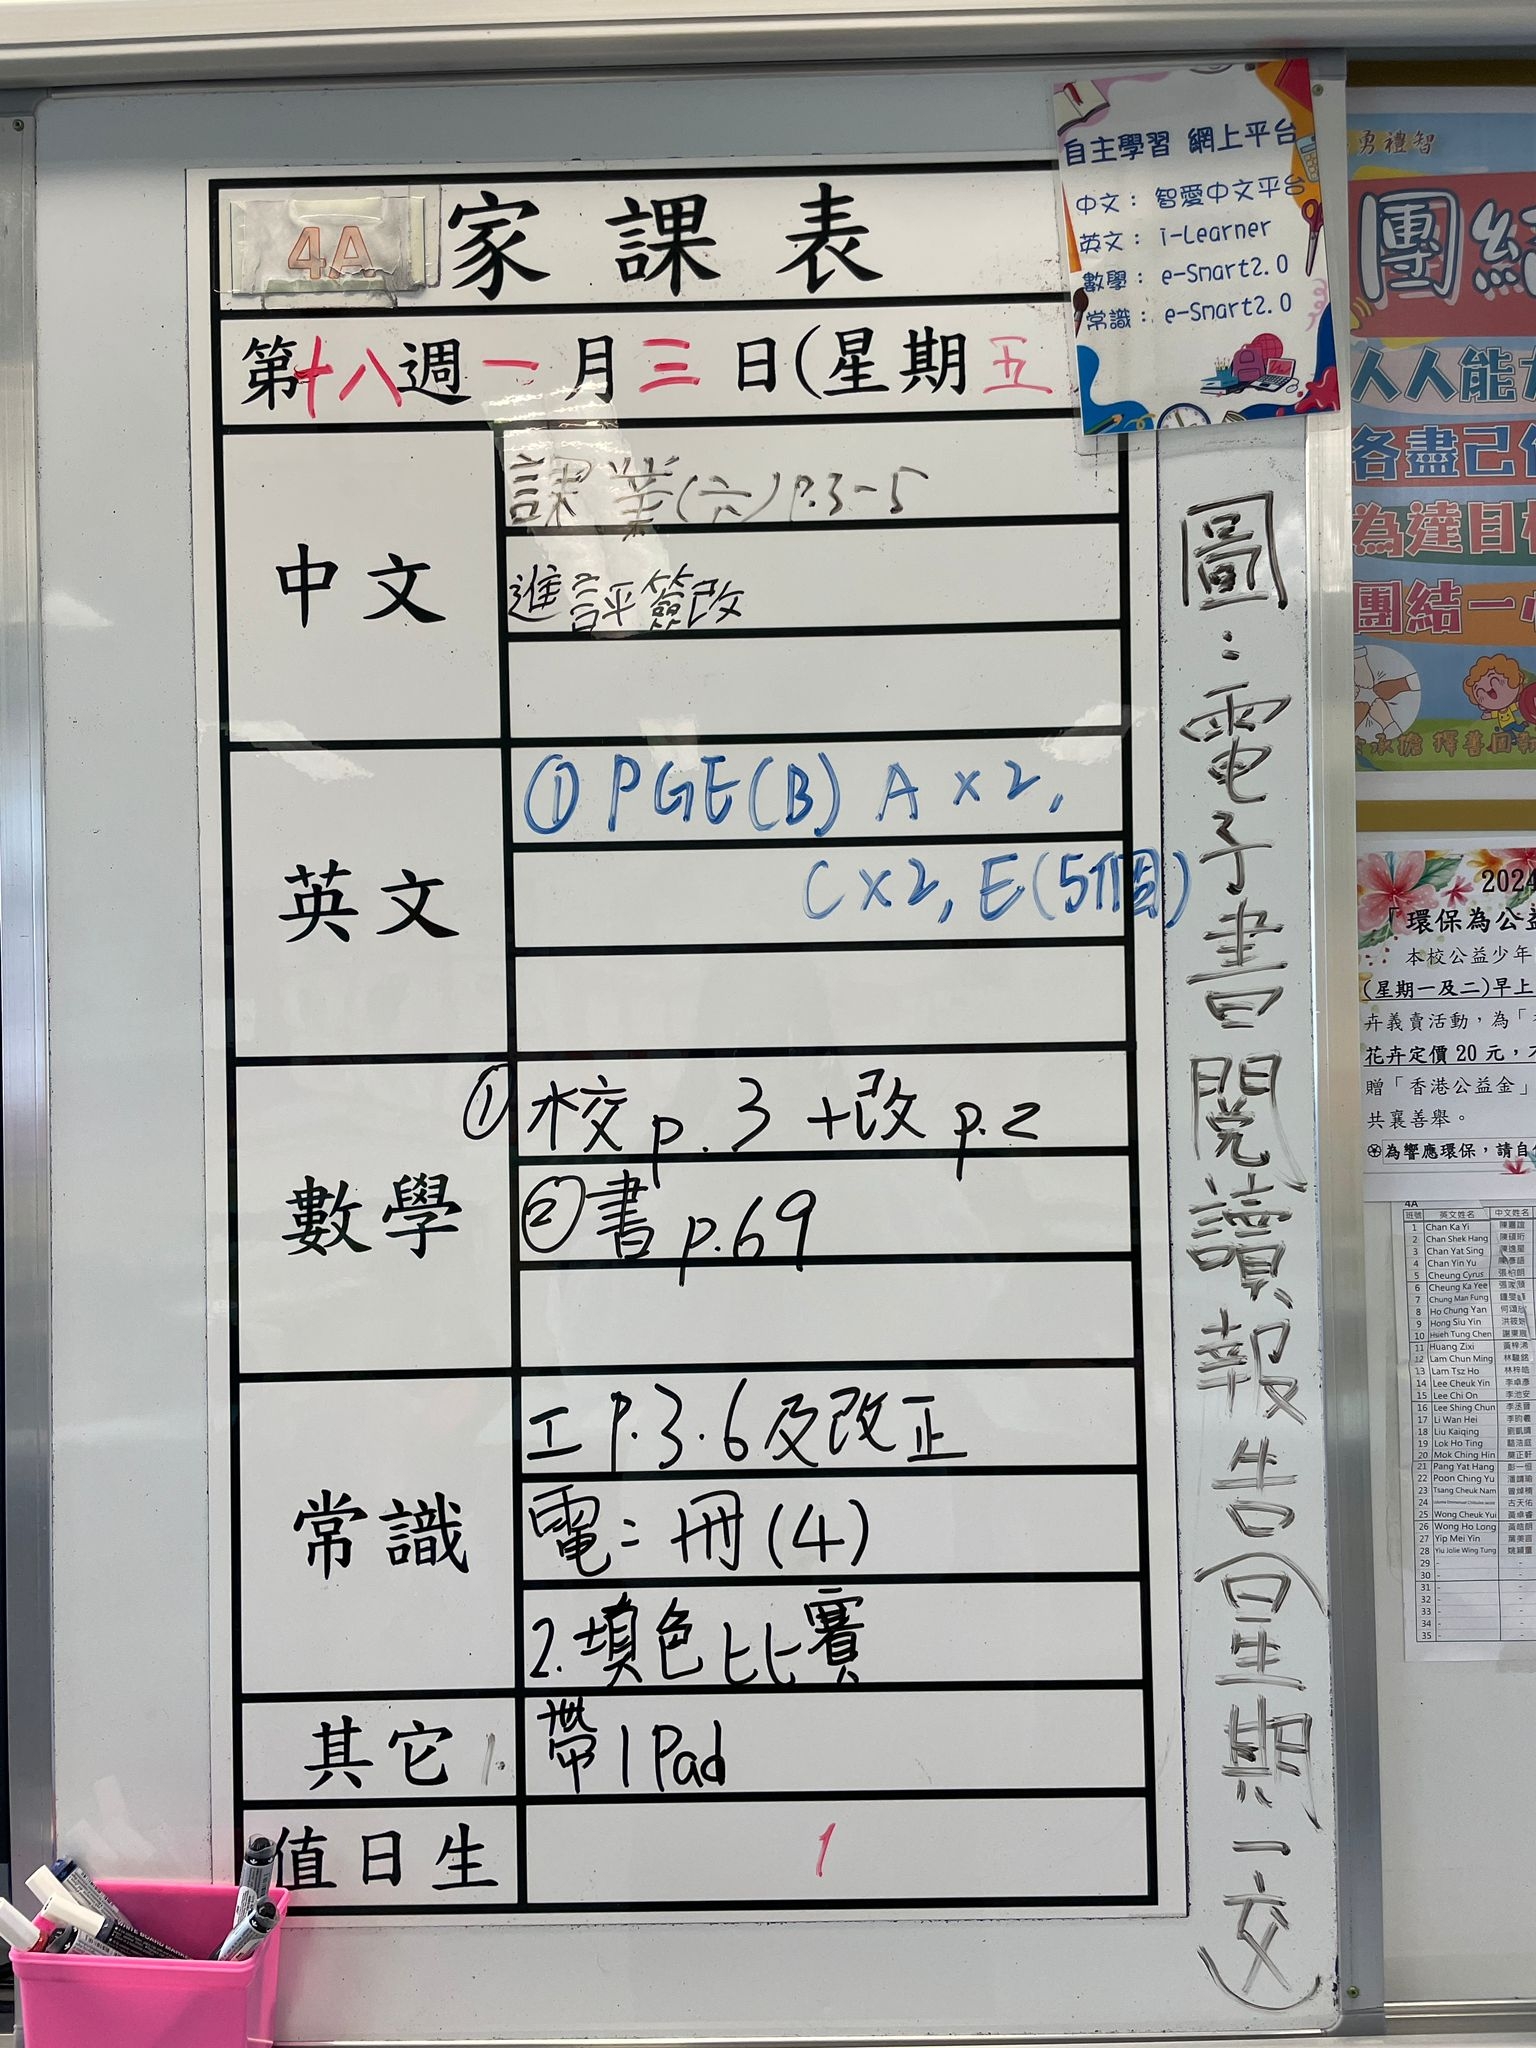 4A 家課表
第十八週一月三日(星期五
中文
課業(六)P.3-5
進評簽改
英文
① PGE(B) A×2,
C×2, E(5個)
數學
① 校 p.3 +改 p.2
② 書 p.69
常識
工 P.3.6及改正
電: 冊(4)
2. 填色比賽
其它
1. 帶 I Pad
值日生
1
圖:電子書閱讀報告(星期一交)
自主學習 網上平台
中文: 智愛中文平台
英文: i-Learner
數學: e-Smart2.0
常識: e-Smart2.0
勇禮智
團結
人人能
各盡己
為達目
團結一
承擔 擇善
2024
「環保為公益
本校公益少年
(星期一及二)早上
卉義賣活動,為「
花卉定價 20 元,
贈「香港公益金」
共襄善舉。
為響應環保,請自
4A
班號 英文姓名 中文姓名
1 Chan Ka Yi
2 Chan Shek Hang
3 Chan Yat Sing
4 Chan Yin Yu
5 Cheung Cyrus 張柏朗
6 Cheung Ka Yee
7 Chung Man Fung
8 Ho Chung Yan
9 Hong Siu Yin
10 Hsieh Tung Chen
11 Huang Zixi
12 Lam Chun Ming
13 Lam Tsz Ho
14 Lee Cheuk Yin 李卓彥
15 Lee Chi On 李池安
16 Lee Shing Chun
17 Li Wan Hei
18 Liu Kaiqing 劉凱晴
19 Lok Ho Ting 駱浩庭
20 Mok Ching Hin 莫正軒
21 Pang Yat Hang 彭一恒
22 Poon Ching Yu
23 Tsang Cheuk Nam
24 古天佑
25 Wong Cheuk Yui 黃卓睿
26 Wong Ho Long 黃皓朗
27 Yip Mei Yin
28 Yiu Jolie Wing Tung
29 -
30 -
31 -
32 -
33 -
34 -
35 -